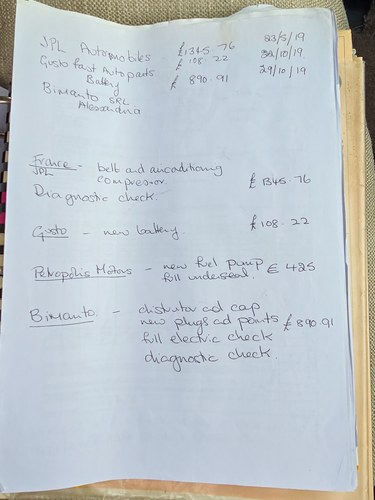 JPL Automobiles £1345.76 23/5/19
Gusto fast Autoparts £ 108.22 22/10/19
Battery
Bimanto SRL £ 890.91 29/10/19
Alessandria
France - belt and airconditioning
JPL compressor.
Diagnostic check. £1345.76
Gusto - new battery. £108.22
Petropolis Motors - new fuel pump € 425
full underseal.
Bimanto - distrutor ad cap
new plugs ad points £890.91
full electric check
diagnostic check.